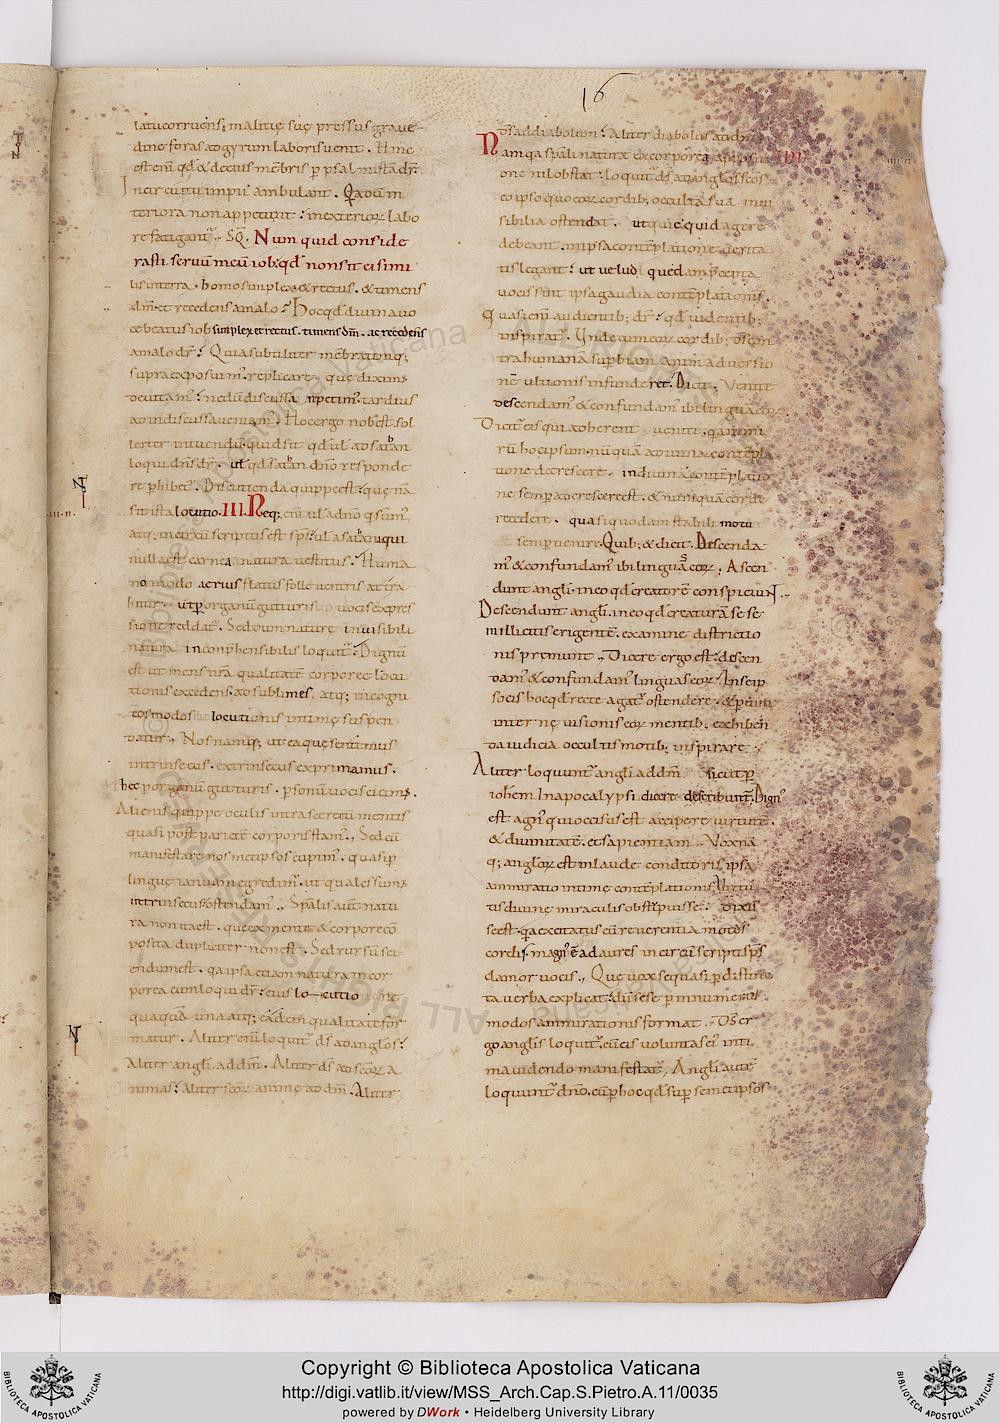 16
latu corruens; malitię suę pressus grave
dine foras ad gyrum laboris venit. Hinc
est eni qd & de eius mēbris p psalmistā dr̄.
In circuitu impii ambulant. Qa dum in
teriora non appetunt: in exterioꝝ labo
re fatigant᷑. SQ. Num quid conside
rasti servū meū iob: qđ non sit ei simi
lis in terra. homo simplex & rectus. & timens
dm̄. et recedens a malo: Hoc qd divina vo
ce beatus iob simplex et rectus. timens dm̄. ac recedens
a malo dr̄: Quia subtiliter mēbratimq;
supra exposuim᷒. replicare. quę diximꝰ
devitam᷒: ne dū discussa repetim᷒. tardius
ad indiscussa veniam᷒. Hoc ergo nob̄ est sol
lerter intuendū. quid sit qd ul̄ ad satan
loqui dn̄s dr̄. ul̄ qd satan dn̄o responde
re phibet᷑. Discutienda quippe est: quę nā
sit ista locutio. III. Neq; eni ul̄ a dn̄o q sum᷒
atq; incircūscriptus est sps̄: ul̄ a satan q qui
nulla est carnea natura vestitus. Humano
modo aerius flatus folle ventris attra
hitur. ut p organū gutturis vocis expres
sione reddat᷑. Sed dum naturę invisibili
natura inconphensibilis loquit᷑: Dignū
est ut mens nr̄a qualitatē corporeę locu
tionis excedens. ad sublimes. atq; incogni
tos modos locutionis intimę suspen
datur. Nos namq; ut ea quę sentimus
intrinsecus. extrinsecus exprimamus.
hęc p organū gutturis. p sonū vocis eicim᷒.
Alienis quippe oculis intra secretū mentis
quasi post parietē corporis stam᷒. Sed cū
manifestare nosmetipsos cupim᷒. quasi p
linguę ianuam egredim᷒. ut quales sum᷒
intrinsecus. ostendam᷒. Sp̄alis aut̄ natu
ra non ita est. quę ex mente & corpore cō
posita dupliciter non est. Sed rursū sci
endum est. qa ipsa etiam natura incor
porea cum loqui dr̄: eius locutio
quaquā una atq; eadem qualitate for
matur. Aliter eni loquit᷑ ds̄ ad anglos:
Aliter angli ad dm̄. Aliter ds̄ ad scōꝝ a
nimas: aliter scōꝝ animę ad dm̄. Aliter
ds̄ ad diabolum: Aliter diabolus ad dm̄
Nam qa sp̄ali naturę ex corporea apposi
one nil obstat: loquit᷑ ds̄ ad anglos scōs
eo ipso quo eoꝝ cordib; occulta sua invi
sibilia ostendat. ut quicquid agere
debeant. in ipsa contēplatione verita
tis legant: ut velud quędam p̄cepta
vocis sint ipsa gaudia contēplationis.
Quasi eni audientib; dr̄: qd videntib;
inspirat᷑. Unde cum eoꝝ cordib; dš con
tra humanā supbiam animadversio
nē ultionis infunderet. Dicit. Venite
descendam᷒ & confundam᷒ ibi linguā eoꝝ.
Dicit᷑ eis qui adherent venite. qa nimi
rū hoc ipsum. nunquā a divina contēpla
tione decrescere. in divina contēplatio
ne semp adcrescere est. & nunquā corde
recedere. quasi quodam stabili motu
semp venire. Quib; & dicit. Descenda
m᷒ & confundam᷒ ibi linguā eoꝝ; Ascen
dunt angli. in eo qd creatorē conspiciunt.
Descendunt angli. in eo qd creaturā sese
in illicitis erigentē. examine districtio
nis premunt. Dicere ergo est: descen
dam᷒ & confundam᷒ linguas eoꝝ. In seip
so eis hoc qd recte agat᷑ ostendere. & p vim
internę visionis eoꝝ mentib; exhiben
da iudicia occultis motib; inspirare.
Aliter loquunt᷑ angli ad dm̄ sicut p
ioh̄em In apocalypsi dicere describunt᷑. Dign᷒
est agn᷒ qui occisus est accipere virtutē.
& divinitatē. et sapientiam. Vox nā
q; angloꝝ est in laude conditoris. ipsa
ammiratio intimę contēplationis. Virtu
tis divinę miraculis obstipuisse: dixis
se est. qa excitatus cū reverentia motus
cordis. magn᷒ ē ad aures incircūscripti sps̄
clamor vocis. Quę vox sese quasi p distinc
ta verba explicat: dū sese p innumeros
modos ammirationis format. Ds̄ er
go anglis loquit᷑. cū eis voluntas ei᷒ inti
ma videndo manifestat᷑. Angli aut̄
loquunt᷑ dn̄o. cū p hoc qd sup semetipsos
Copyright © Biblioteca Apostolica Vaticana
http://digi.vatlib.it/view/MSS_Arch.Cap.S.Pietro.A.11/0035
powered by DWork • Heidelberg University Library